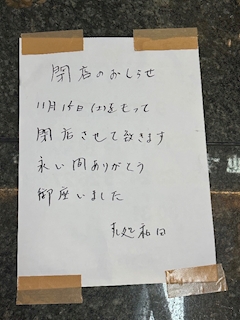 閉店のおしらせ
11月14日(土)をもって
閉店させて頂きます
永い間ありがとう
御座いました